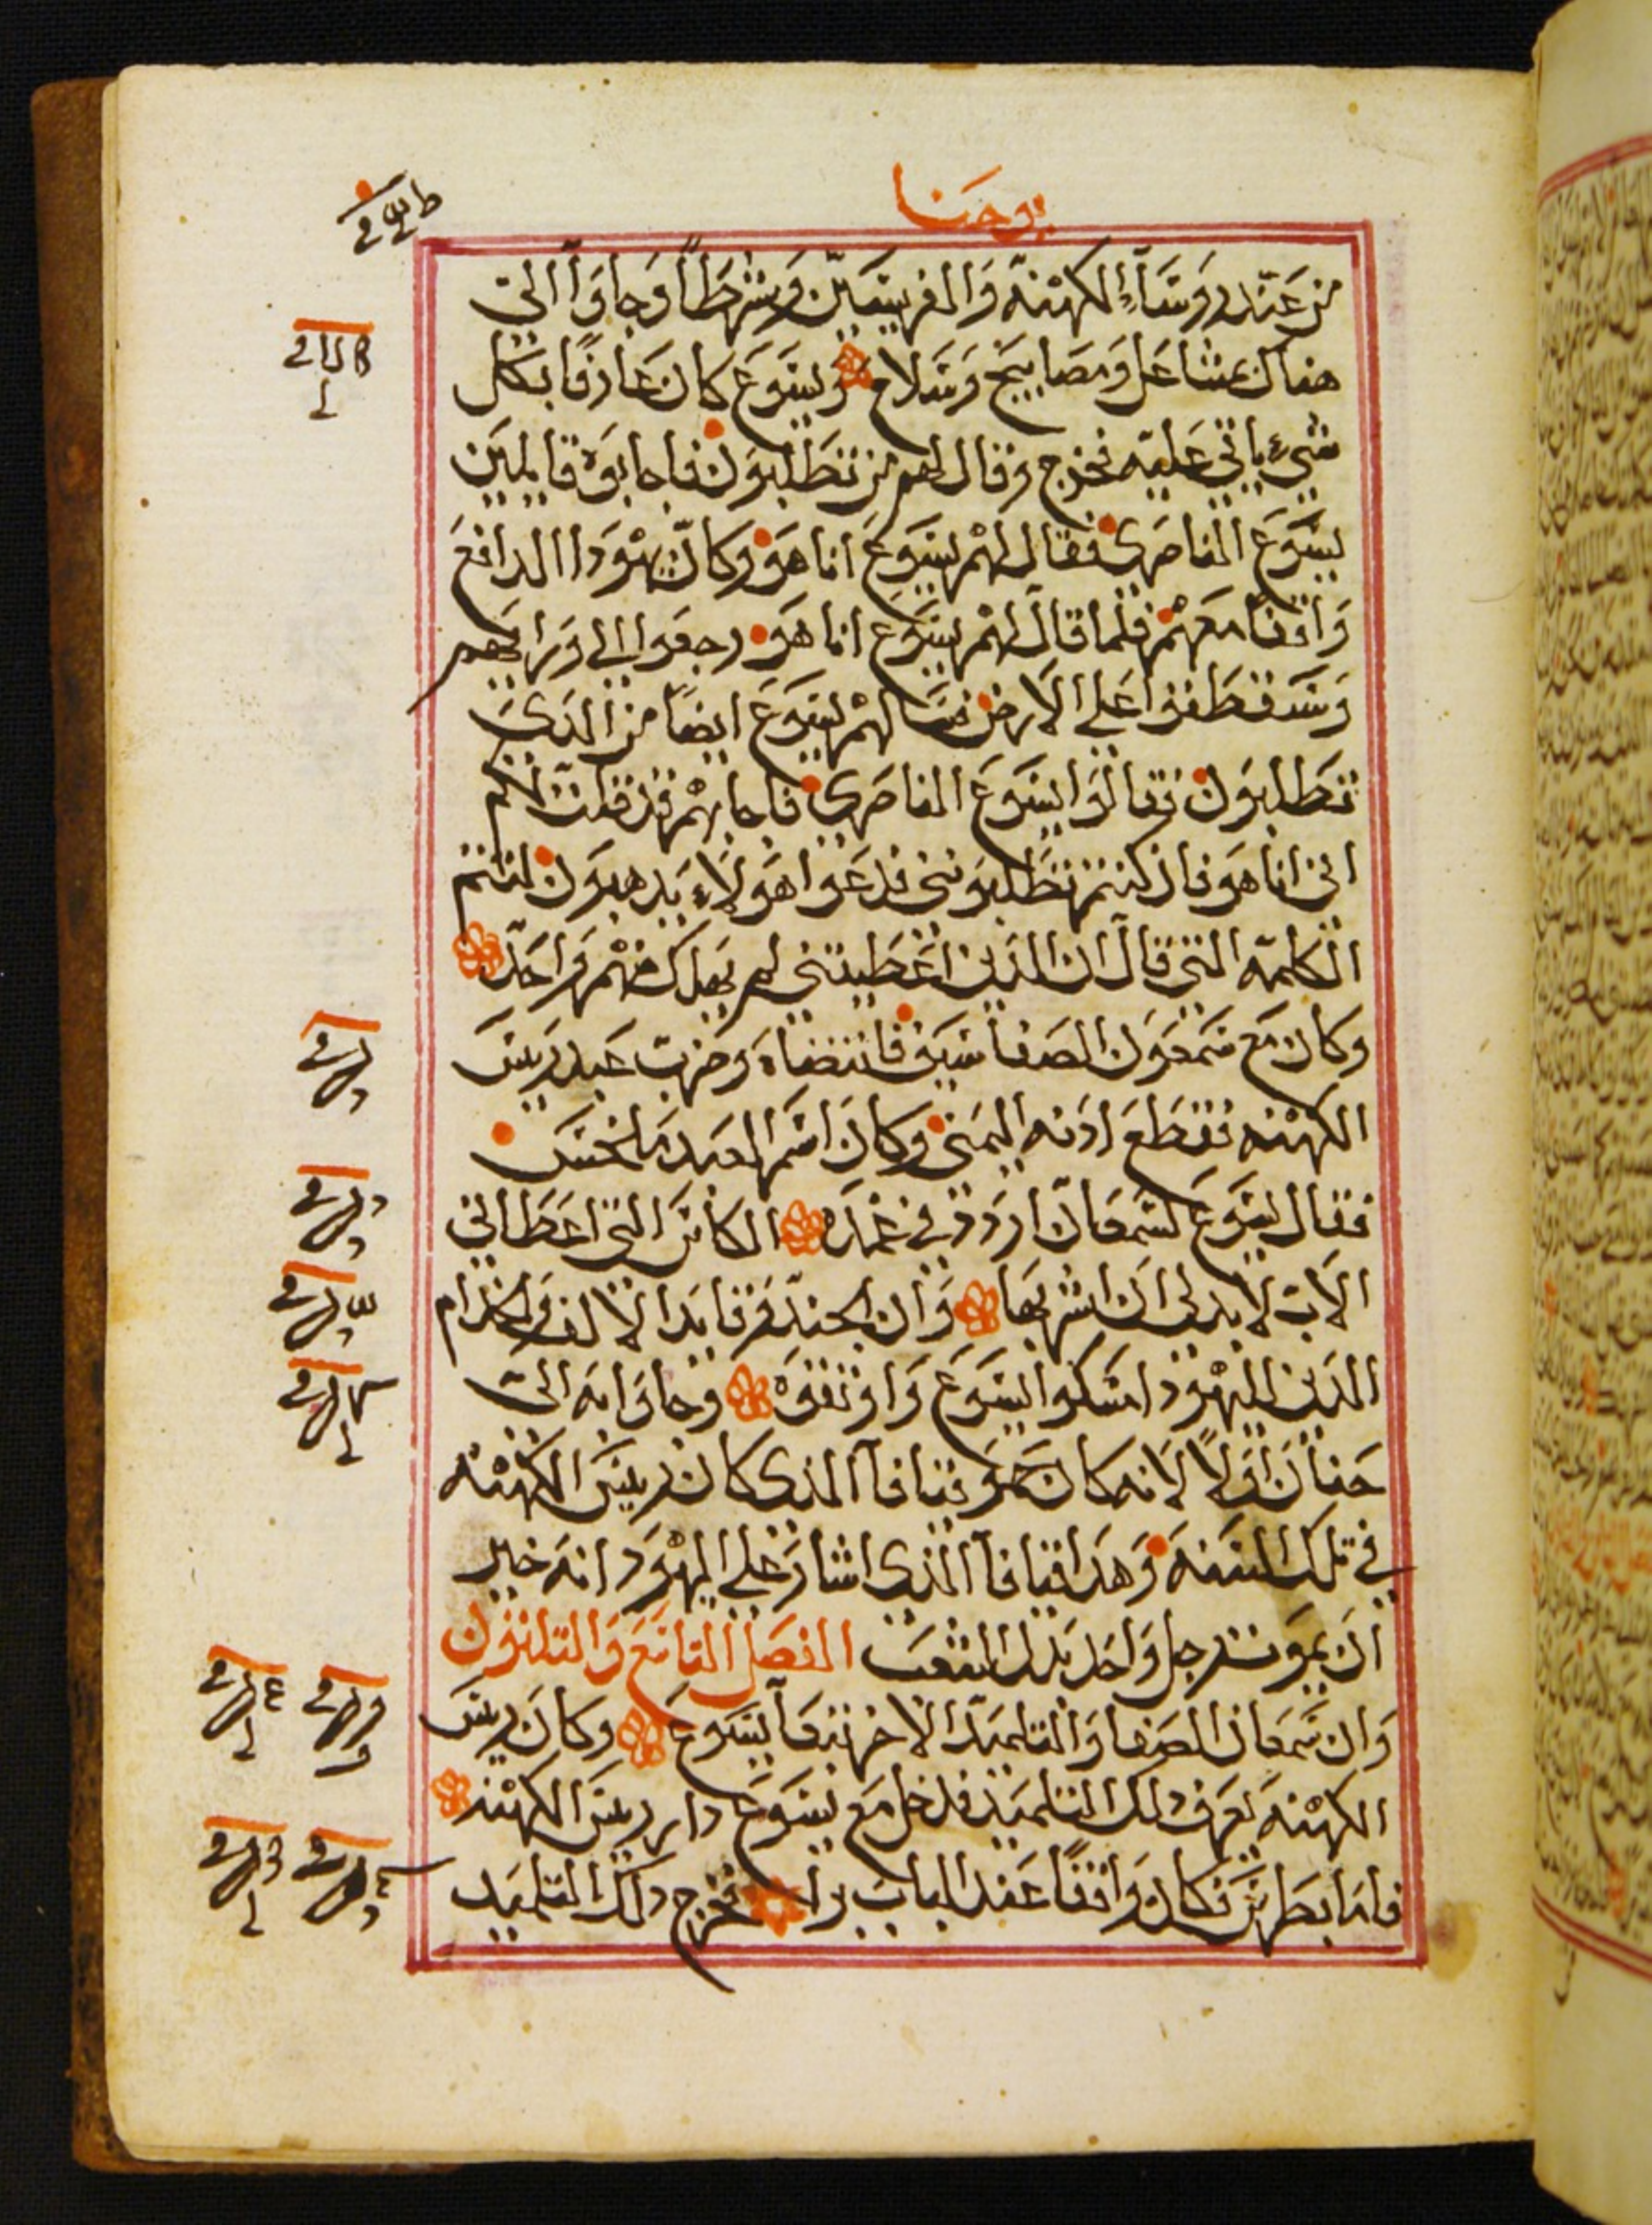 يوحنا
من عند روسَاءِ الكهنه وَالفريسيين وَشرطاً وَجاوَا الى
هناك بمشاعل وَمصَابيح وَسَلاح وَيسَوع كان عَارفًا بكل
شيء ياتي عَليه فخرج وقال لهم من تطلبوَن فاجابوَه قايلين
يسَوع الناصَرى فقال لهم يسَوع انا هوَ وكان يهوَدا الدافع
وَاقفاً معَهم فلما قال لهم يسَوع انا هوَ رجعوا الى وَرايهم
وَسَقطوا على الارض فسَالهم يسَوع ايضاً من الذى
تطلبوَن فقالوَا يسَوع الناصَرى فاجابهم قد قلت لكم
انى انا هوَ فان كنتم تطلبوَنى فدعَوا هوَلاء يدهبوَن لتتم
الكلمه التى قال ان الذين اعَطيتنى لم يهلك منهم وَاحَد
وكان مع سَمعوَن الصَفا سَيف فانتضاه وَضرب عَبد ريسَ
الكهنه فقطع ادنه اليمنى وكان اسَم العبد ملخسَ
فقال يسَوع لسَمعَان اردد في غمده الكاسَ التى اعَطانى
الاب لابد لى ان اشربهَا وَان الجند وَقايد الالف وَالخدام
الذين لليهوَد امسَكوا يسَوع وَاوثقوَه وجاوَا به الى
حَنان اوَلاً لانه كان حموَ قيافا الذى كان ريسَ الكهنه
في تلك السَنه وَهَدا قيافا الذى اشار عَلى اليهوَد انه خير
ان يموَت رجل وَاحَد بدل الشعَب الفصَل التاسَع وَالتلاثوَن
وَان سَمعَان الصَفا وَالتلميد الاخر تبعَا يسَوع وكان ريسَ
الكهنه يعَرف دلك التلميد فدخل مع يسَوع دار ريسَ الكهنه
فاما بطرسَ فكان وَاقفاً عَند الباب برا فخرج دلك التلميد